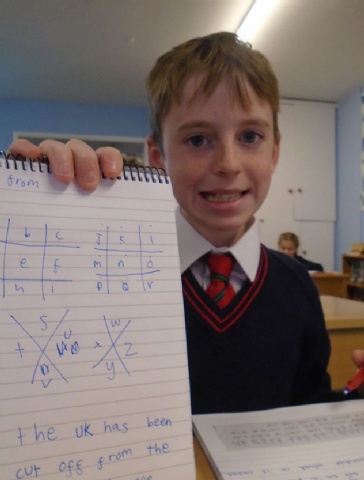 from
b c j k l
e f m n o
h i p q r
s w
t u x z
v y
the UK has been
cut off from the